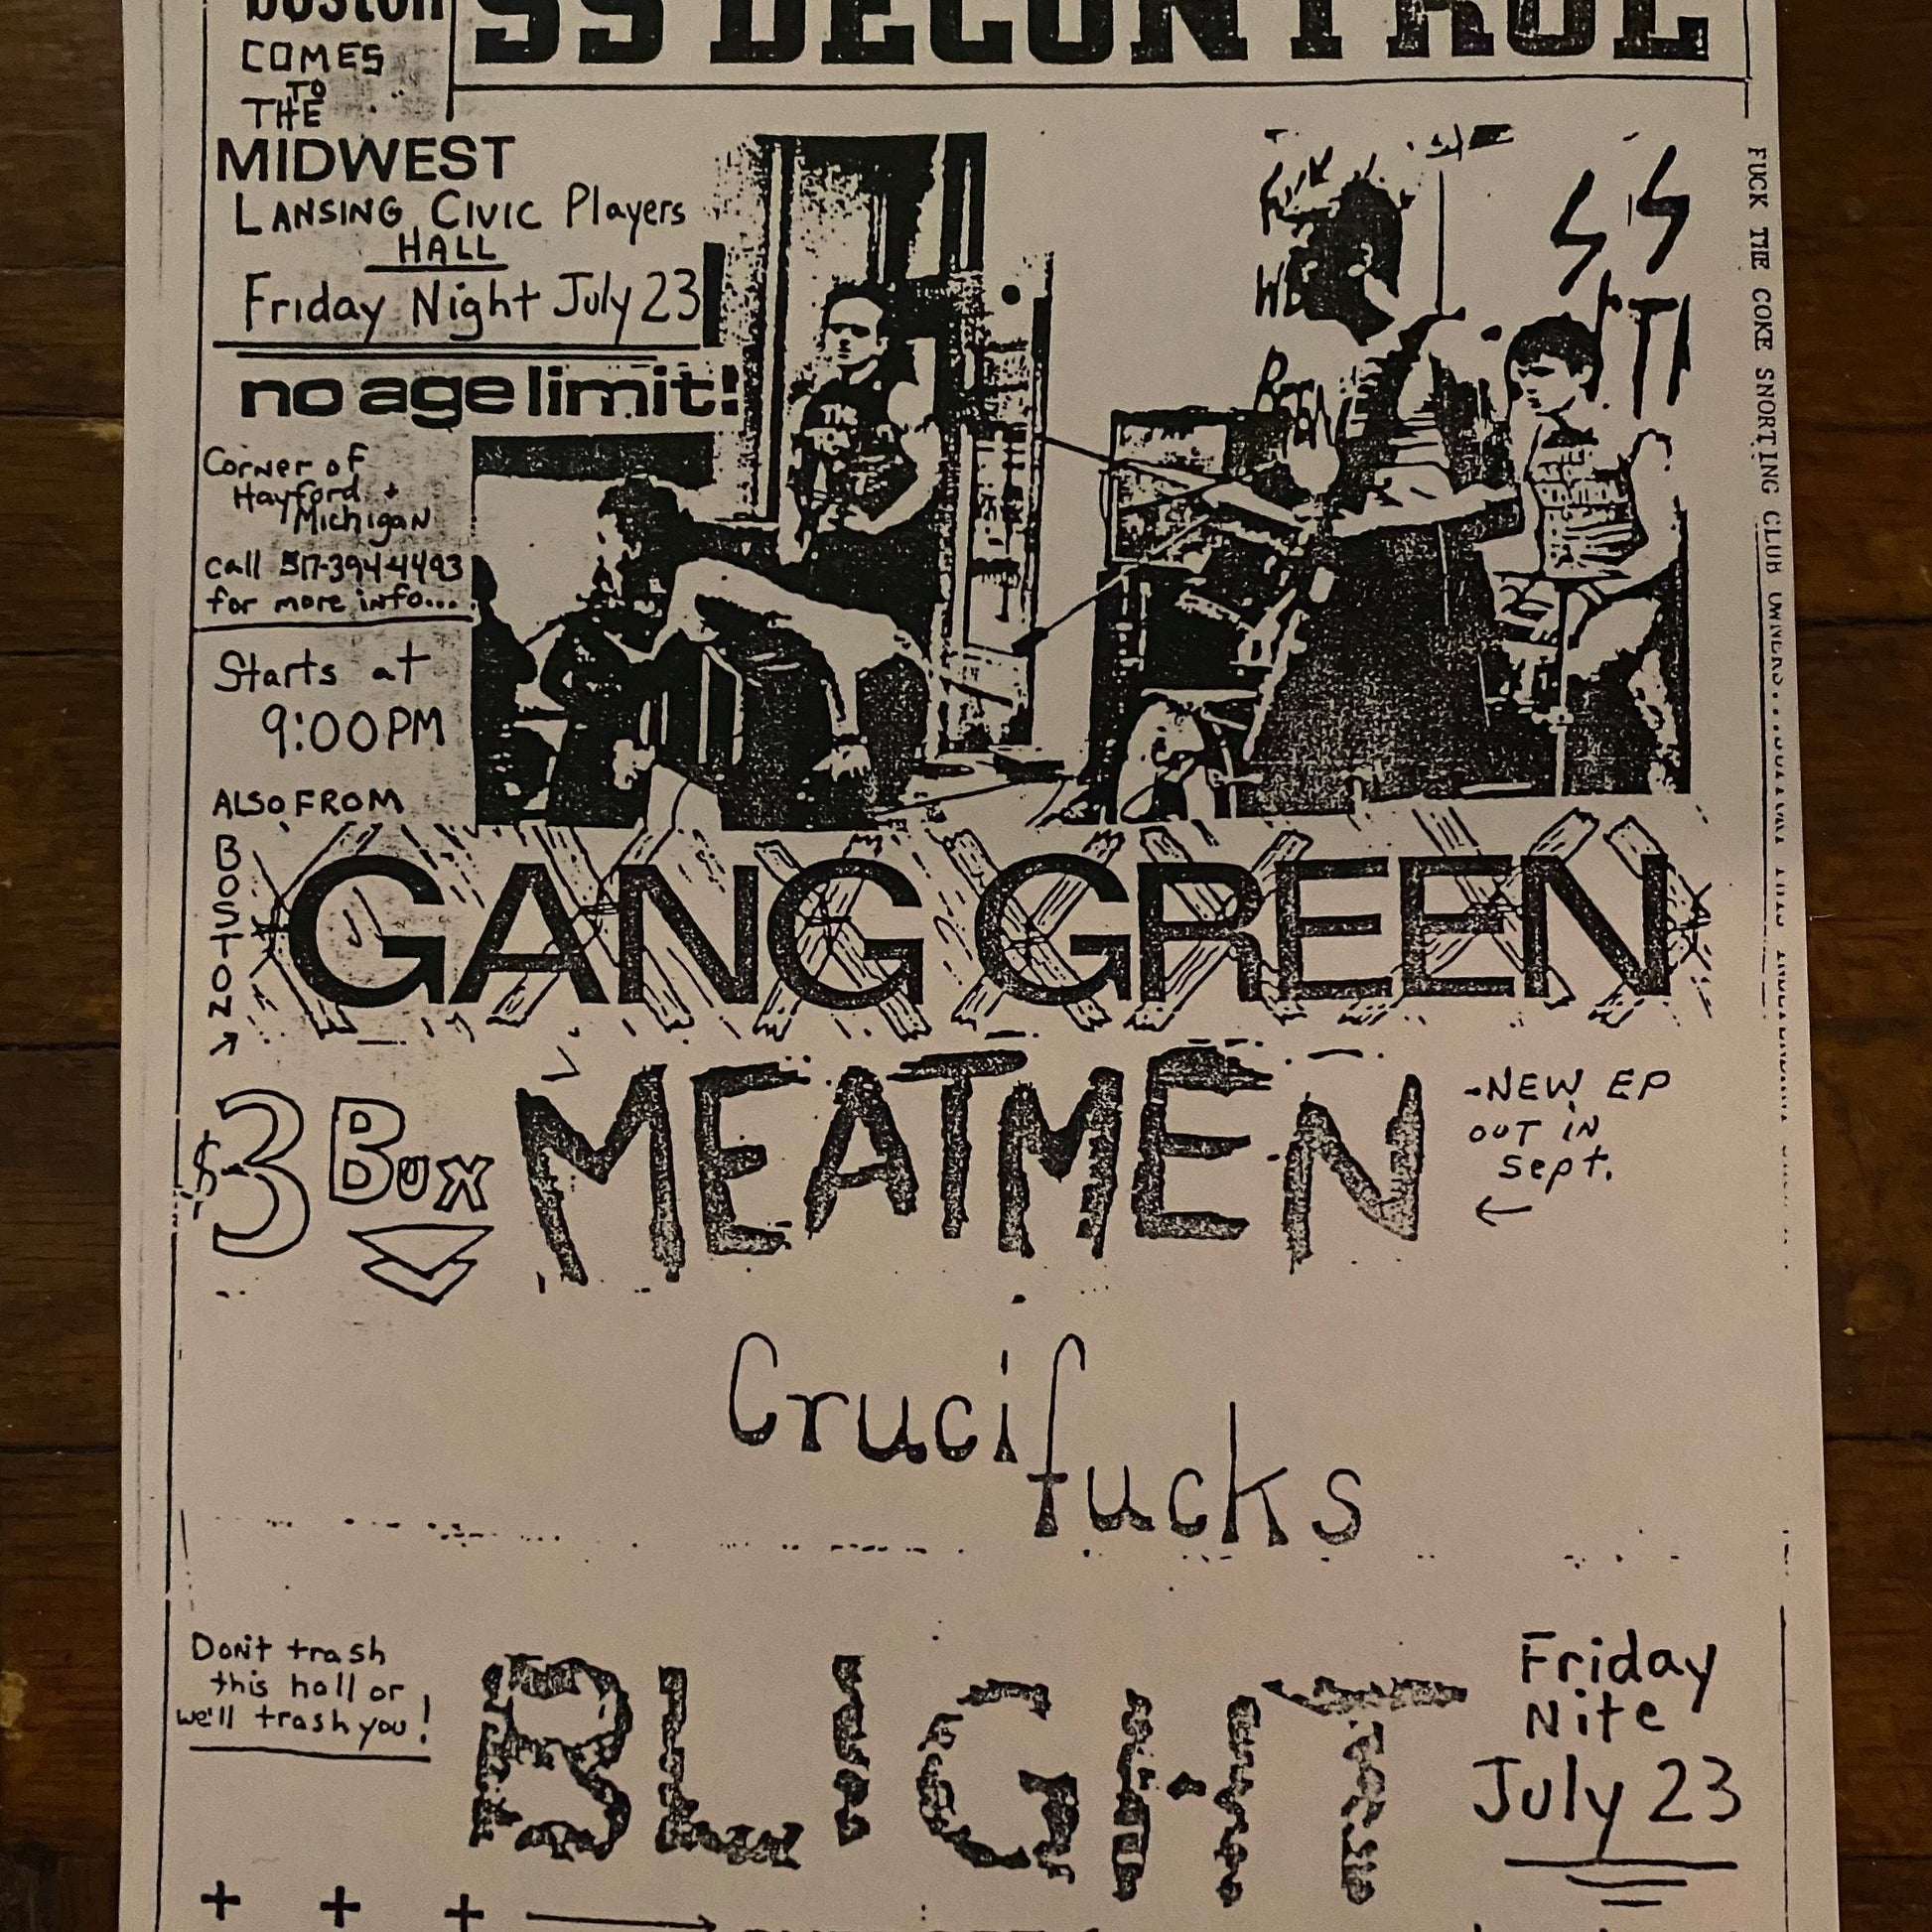 boston
SS DECONTROL
COMES
TO
THE
MIDWEST
LANSING CIVIC Players
HALL
Friday Night July 23
no age limit!
Corner of
Hayford +
Michigan
call 517-394-4493
for more info...
Starts at
9:00 PM
ALSO FROM
BOSTON
GANG GREEN
$3 Bux
MEATMEN
-NEW EP
OUT IN
Sept.
Crucifucks
Don't trash
this hall or
we'll trash you!
BLIGHT
Friday
Nite
July 23
FUCK THE COKE SNORTING CLUB OWNERS...